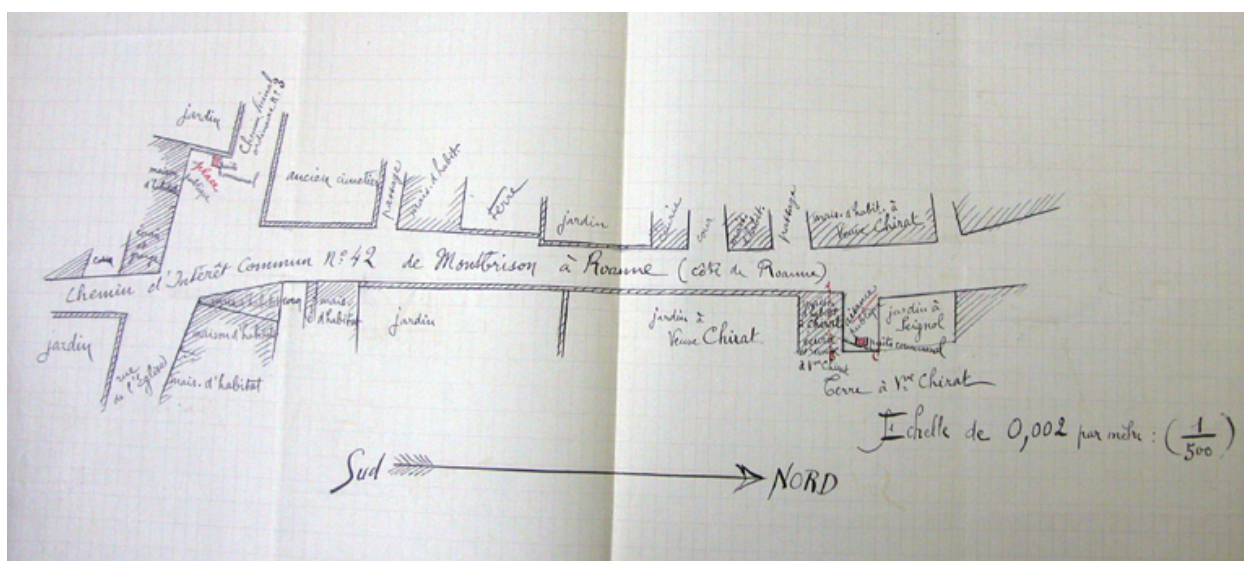 jardin
Chemin vicinal
ordinaire N° 3
place
publique
ancien cimetière
passage
mais. d'habit.
Terre
jardin
cour
passage
mais. d'habit. à
Veuve Chirat
cour
Chemin d'Intérêt Commun N° 42 de Montbrison à Roanne (côté de Roanne)
jardin
rue
de l'Eglise
maison d'habit.
mais. d'habitat
mais.
d'habitat
jardin
jardin à
Veuve Chirat
jardin à
Peignol
puits communal
Terre à Vve Chirat
Echelle de 0,002 par mètre : (1/500)
Sud
NORD